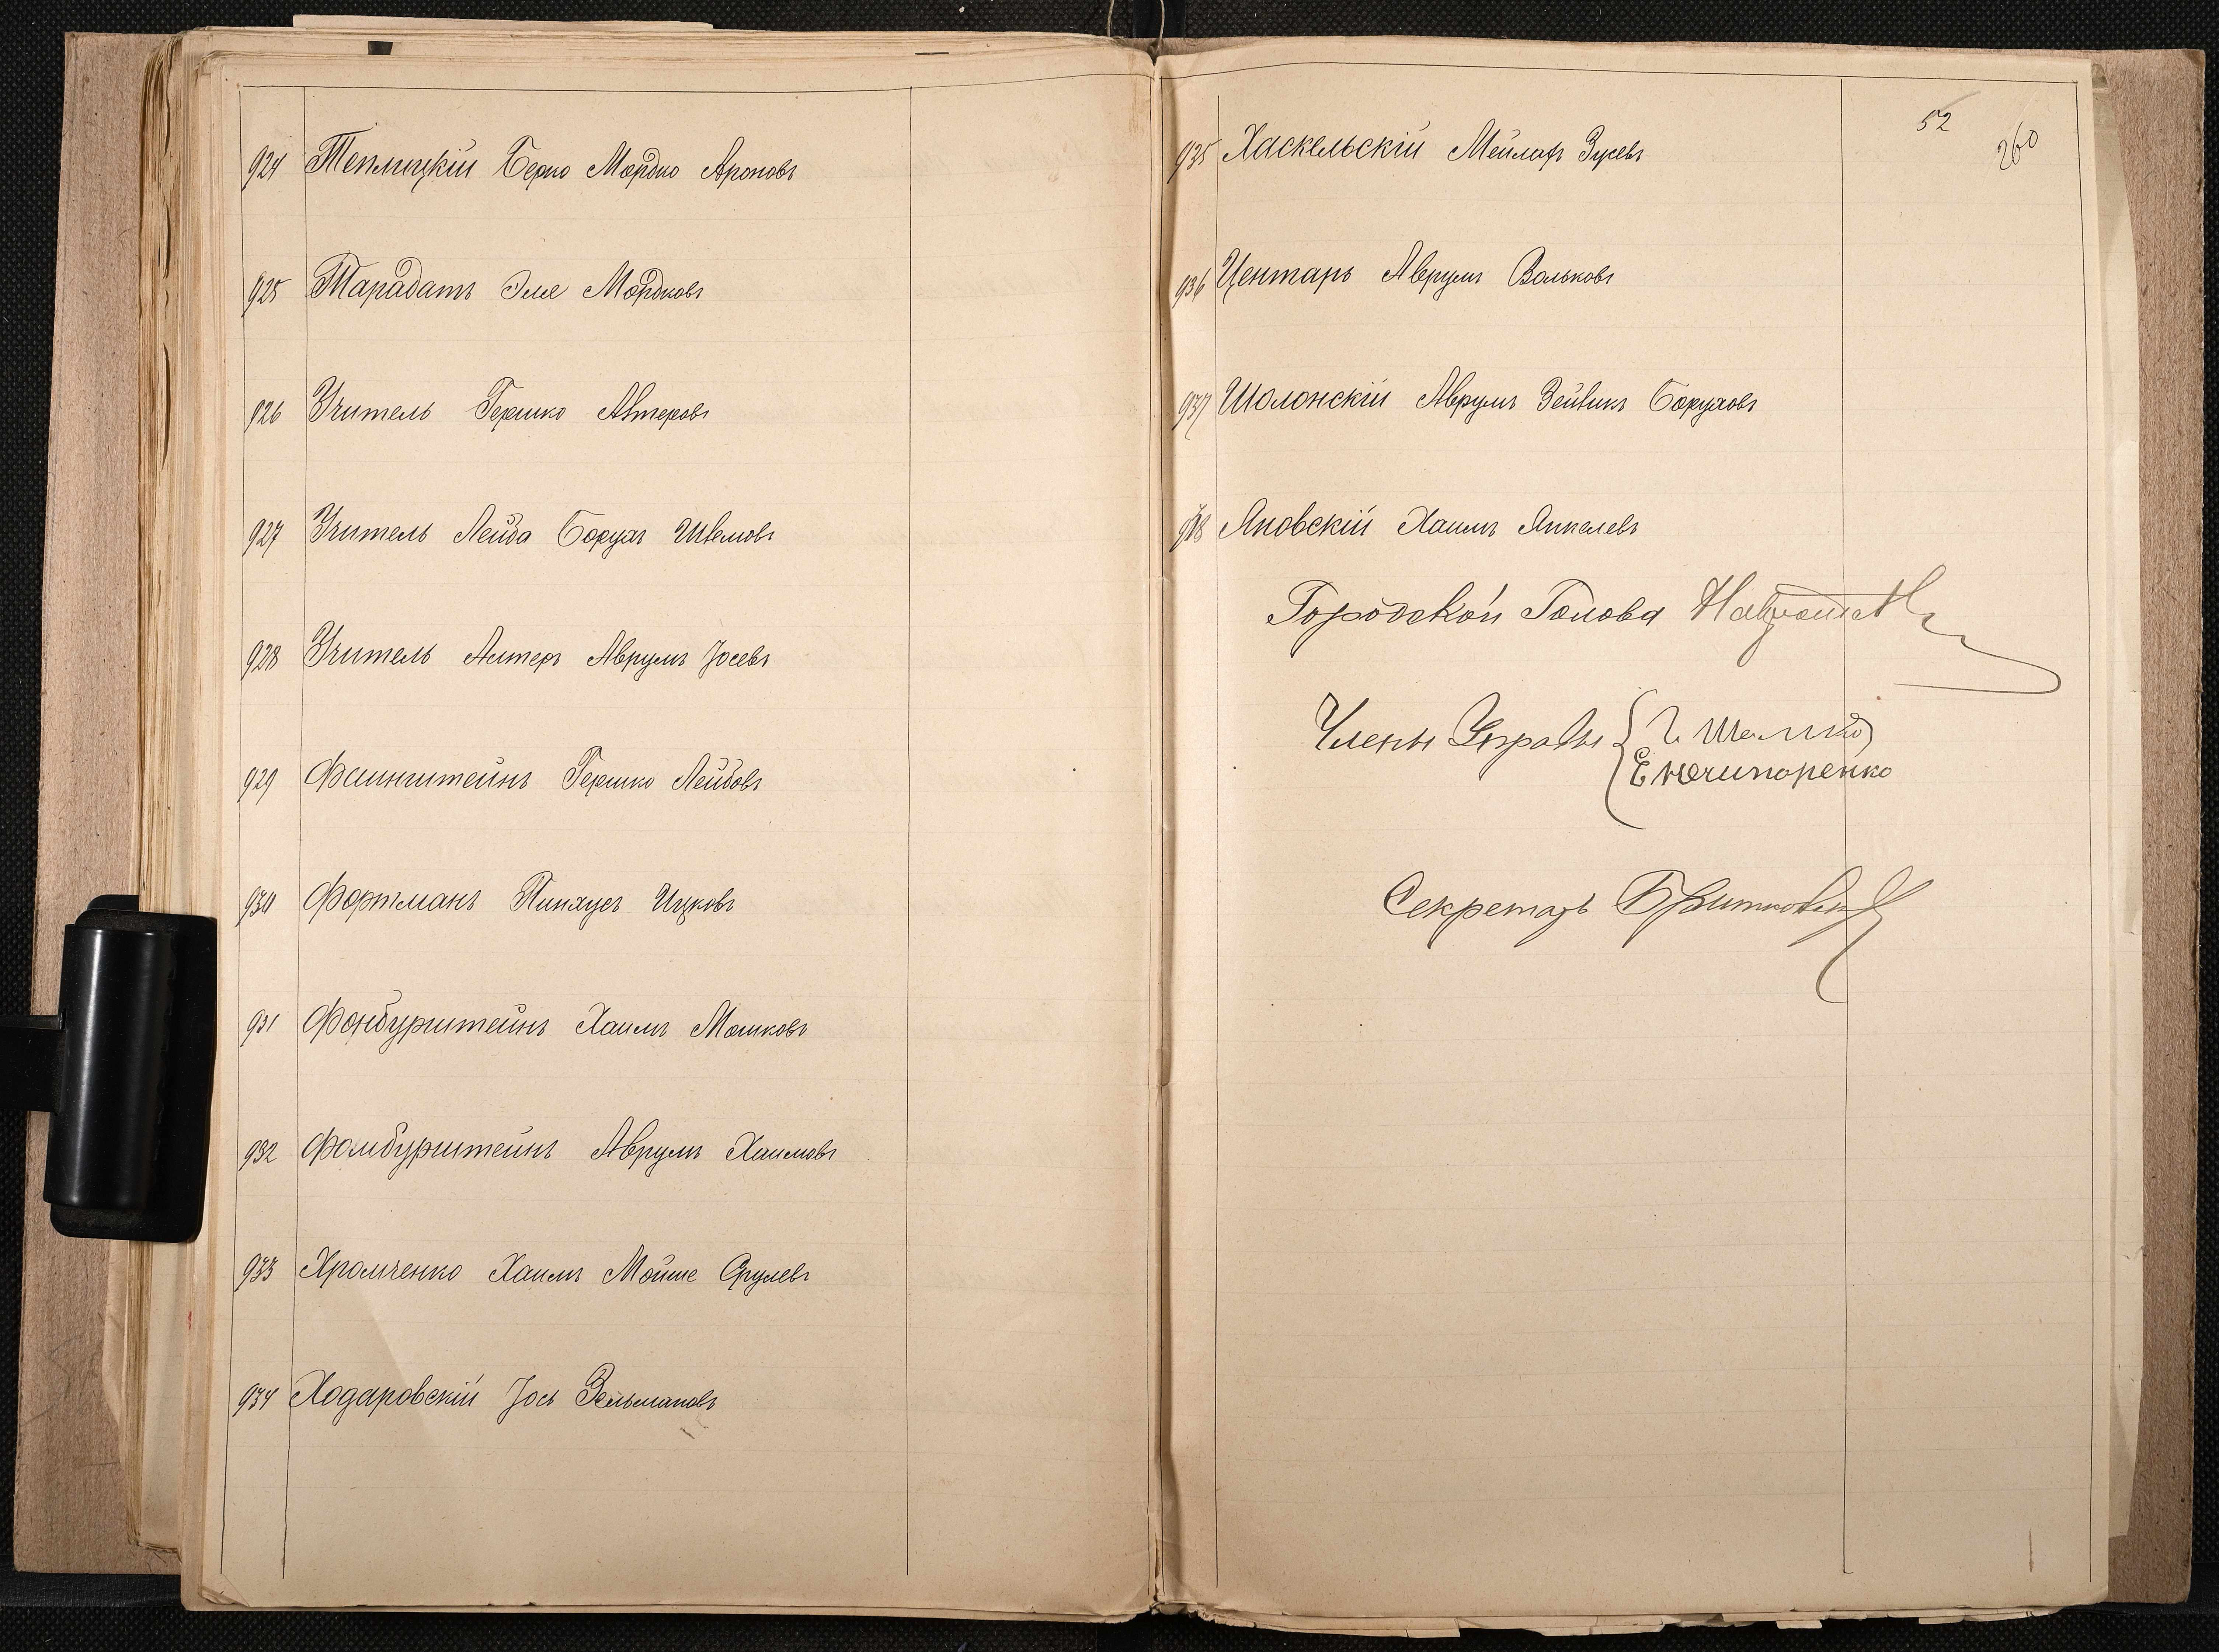 924 Теплицкій Берко Мордко Ароновъ
925 Тарадашъ Эле Мордковъ
926 Учитель Гершко Автеровъ
927 Учитель Лейба Борухъ Шлемовъ
928 Учитель Алтеръ Аврумъ Іосевъ
929 Файнштейнъ Гершко Лейбовъ
930 Фортманъ Пинхусъ Ицковъ
931 Фонбурштейнъ Хаимъ Мошковъ
932 Фомбурштейнъ Аврумъ Хаимовъ
933 Хромченко Хаимъ Мойше Срулевъ
934 Ходаровскій Іось Зельмановъ
52
260
935 Хаскельскій Мейлахъ Зусевъ
936 Центаръ Аврумъ Вольковъ
937 Шолонскій Аврумъ Зейликъ Боруховъ
938 Яновскій Хаимъ Янкелевъ
Городской Голова
Члены Управы
Е Нечипоренко
Секретарь